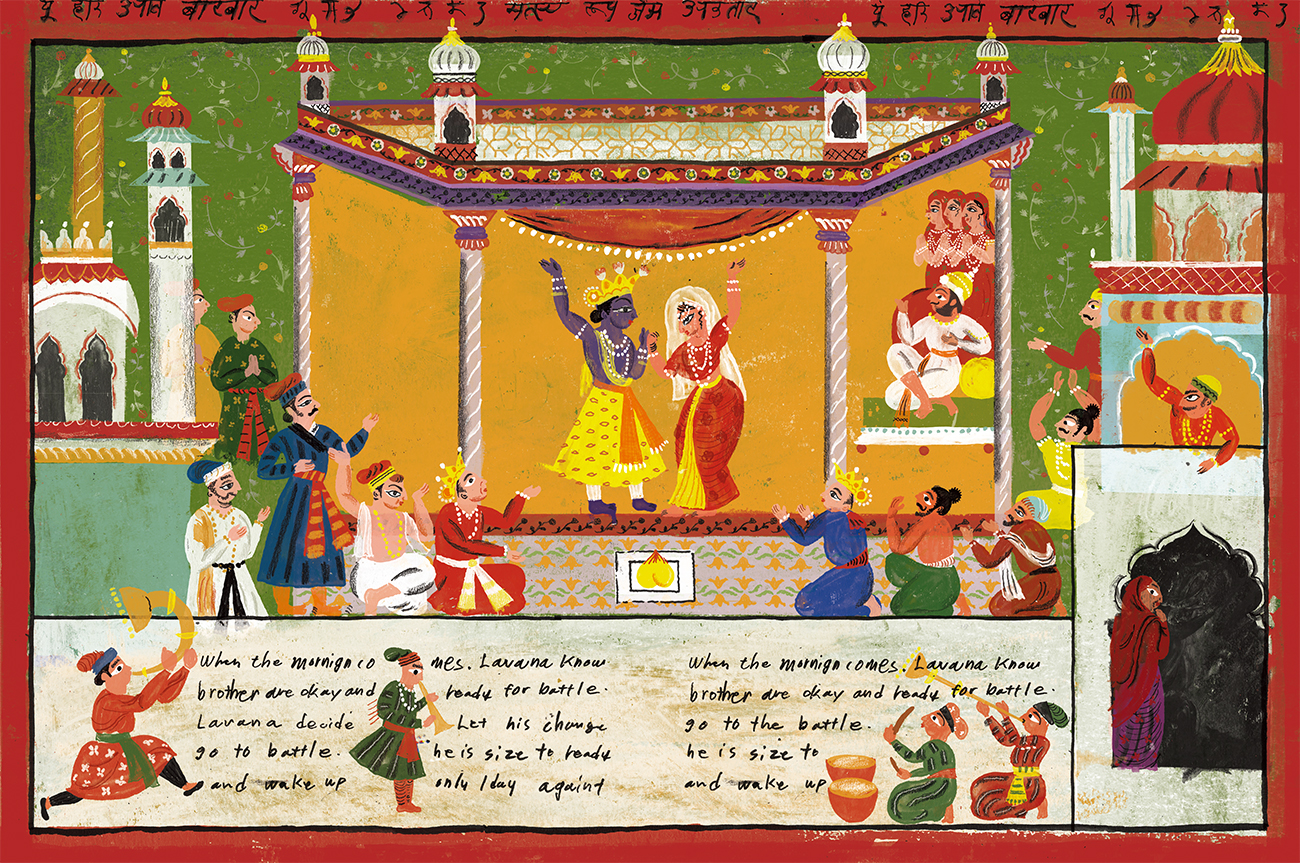 यू हरि उपाव बारबार
मत्स्य रूप जेम अवतार.
यू हरि उपाव बारबार
When the mornign co mes. Lavana know
brother are okay and ready for battle.
Lavana decide Let his change
go to battle. he is size to ready
and wake up only 1 day against
When the mornign comes. Lavana know
brother are okay and ready for battle.
go to the battle.
he is size to
and wake up